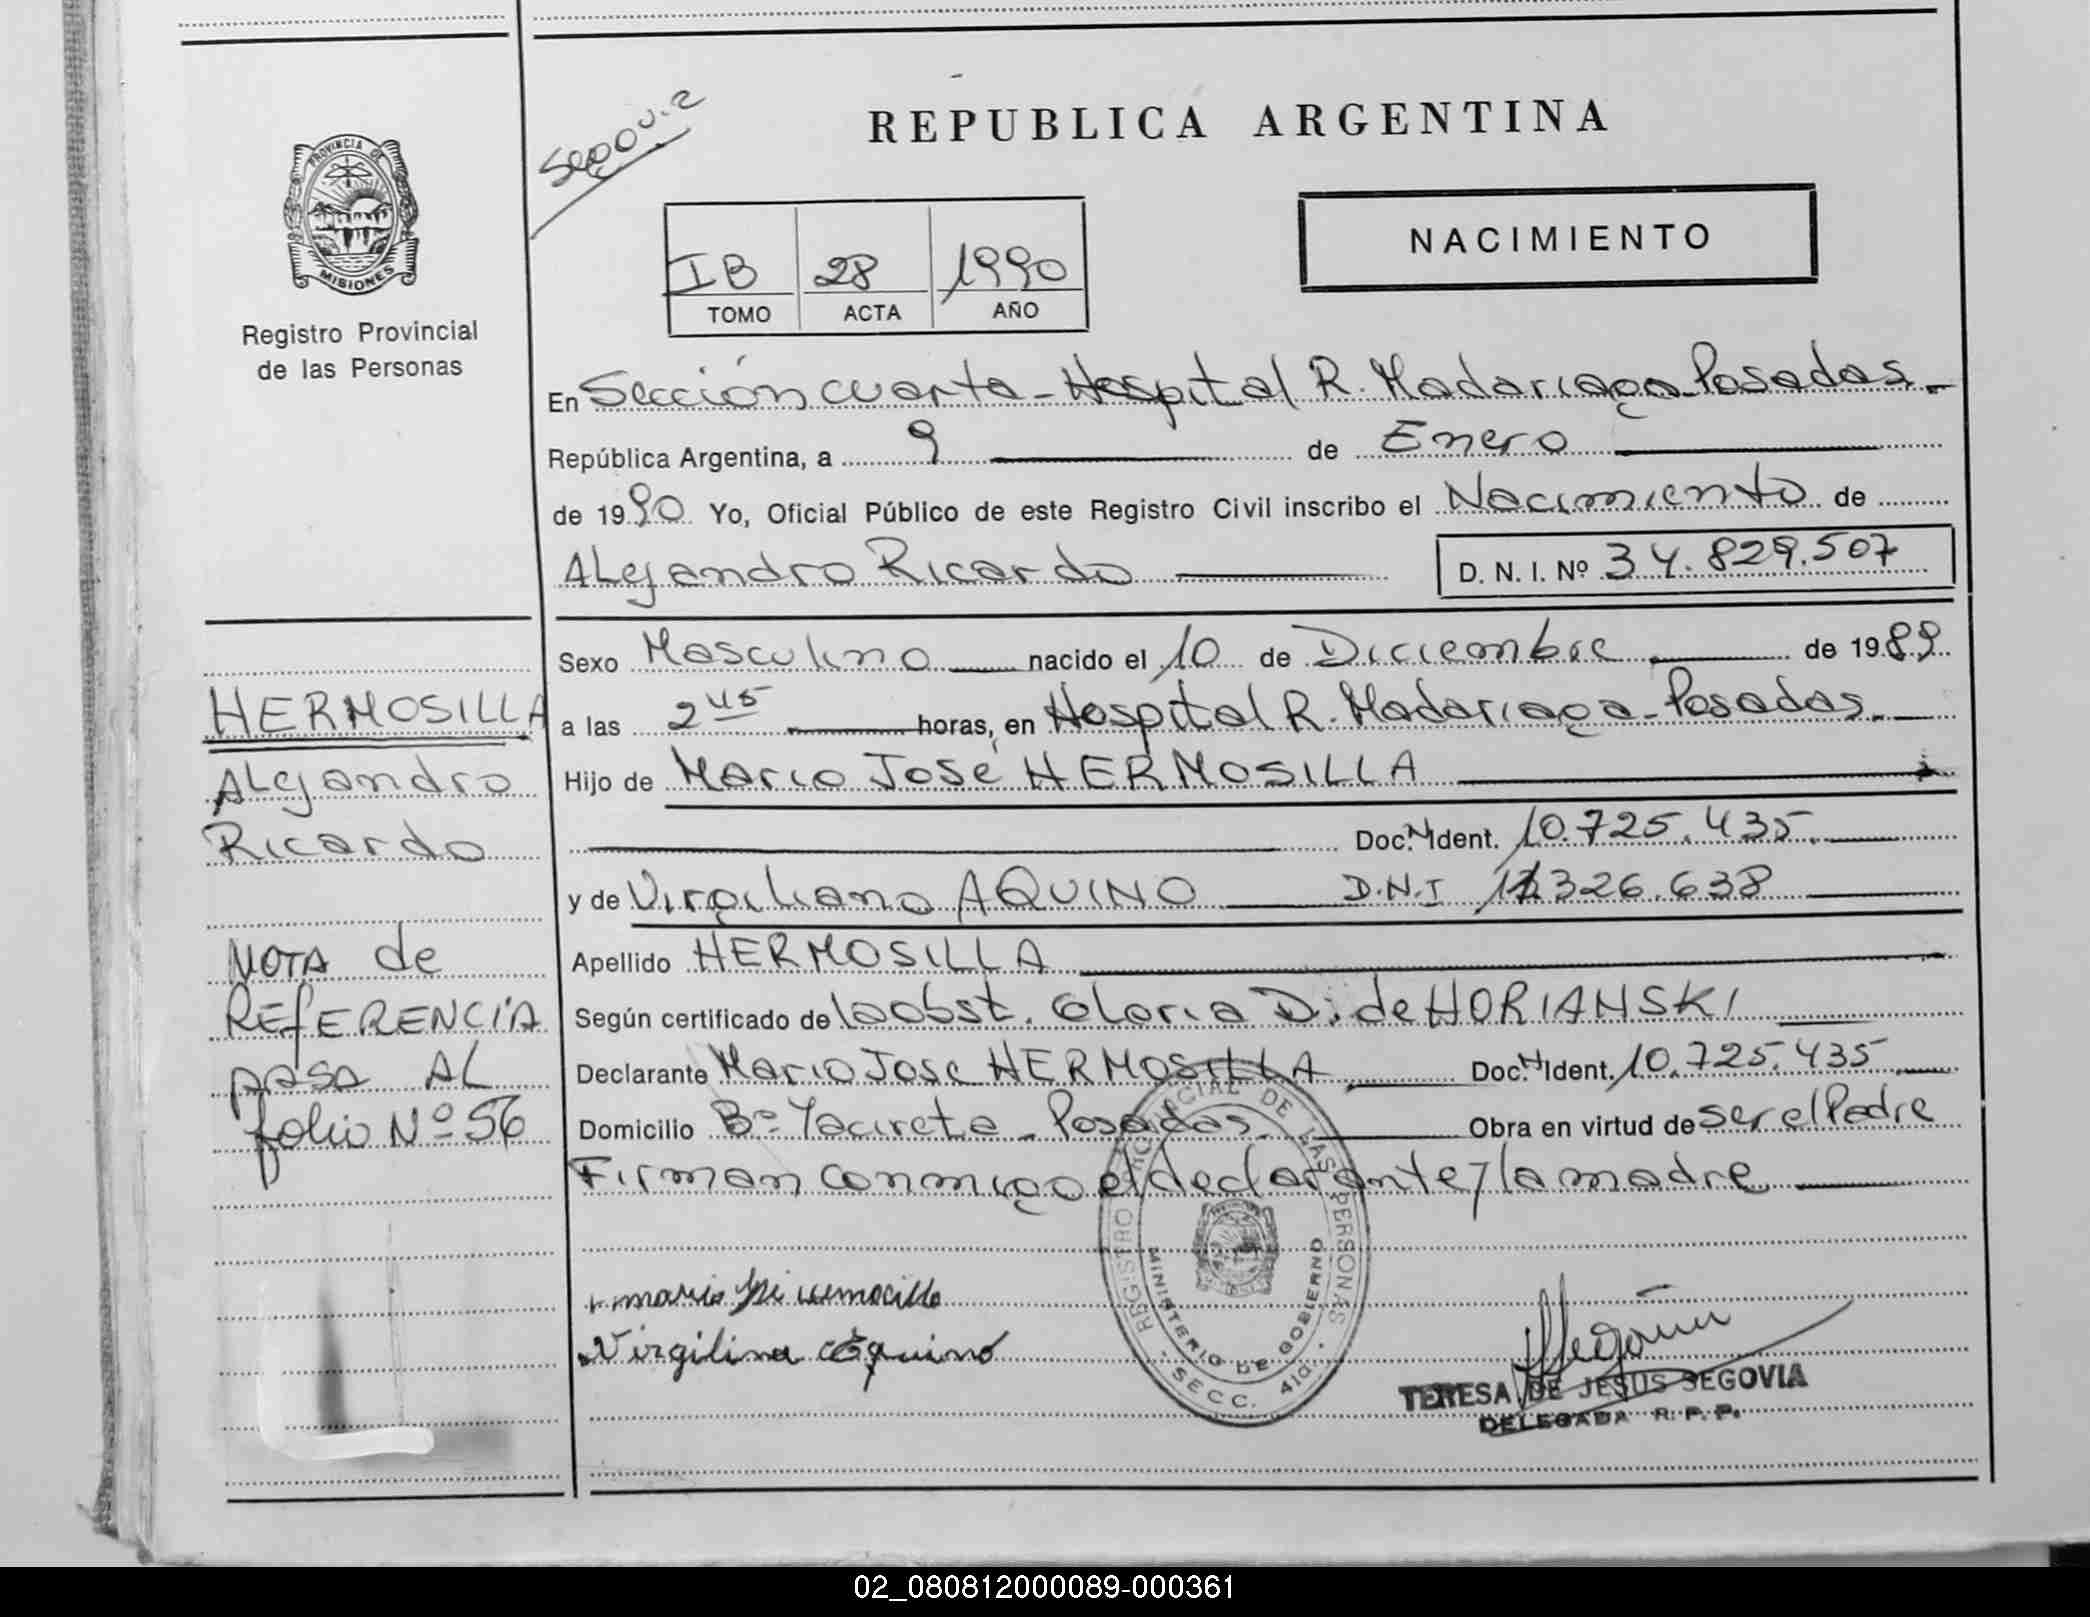 Segovia
REPUBLICA ARGENTINA
PROVINCIA DE
MISIONES
Registro Provincial
de las Personas
IB 28 1990
TOMO ACTA AÑO
NACIMIENTO
En Sección cuarta - Hospital R. Madariaga Posadas.-
República Argentina, a 9 de Enero
de 1990 Yo, Oficial Público de este Registro Civil inscribo el Nacimiento de
Alejandro Ricardo D. N. I. Nº 34.829.507
Sexo Masculino nacido el 10 de Diciembre de 1989
a las 2 45 horas, en Hospital R. Madariaga - Posadas.
Hijo de Mario José HERMOSILLA
Doc. N Ident. 10.725.435.
y de Virgiliana AQUINO D.N.I 326.638
Apellido HERMOSILLA
Según certificado de la Obst. Gloria D. de HORIANSKI
Declarante Mario Jose HERMOSILLA Doc. N Ident. 10.725.435
Domicilio Bº Yacireta - Posadas - Obra en virtud de ser el Padre
Firman conmigo el declarante y la madre
HERMOSILLA
Alejandro
Ricardo
NOTA de
REFERENCIA
PASA AL
folio Nº 56
mario
Virgilina Aquino
REGISTRO PROVINCIAL DE LAS PERSONAS
MINISTERIO DE GOBIERNO
- SECC. 4ta. -
Segovia
TERESA DE JESUS SEGOVIA
DELEGADA R. P. P.
02_080812000089-000361